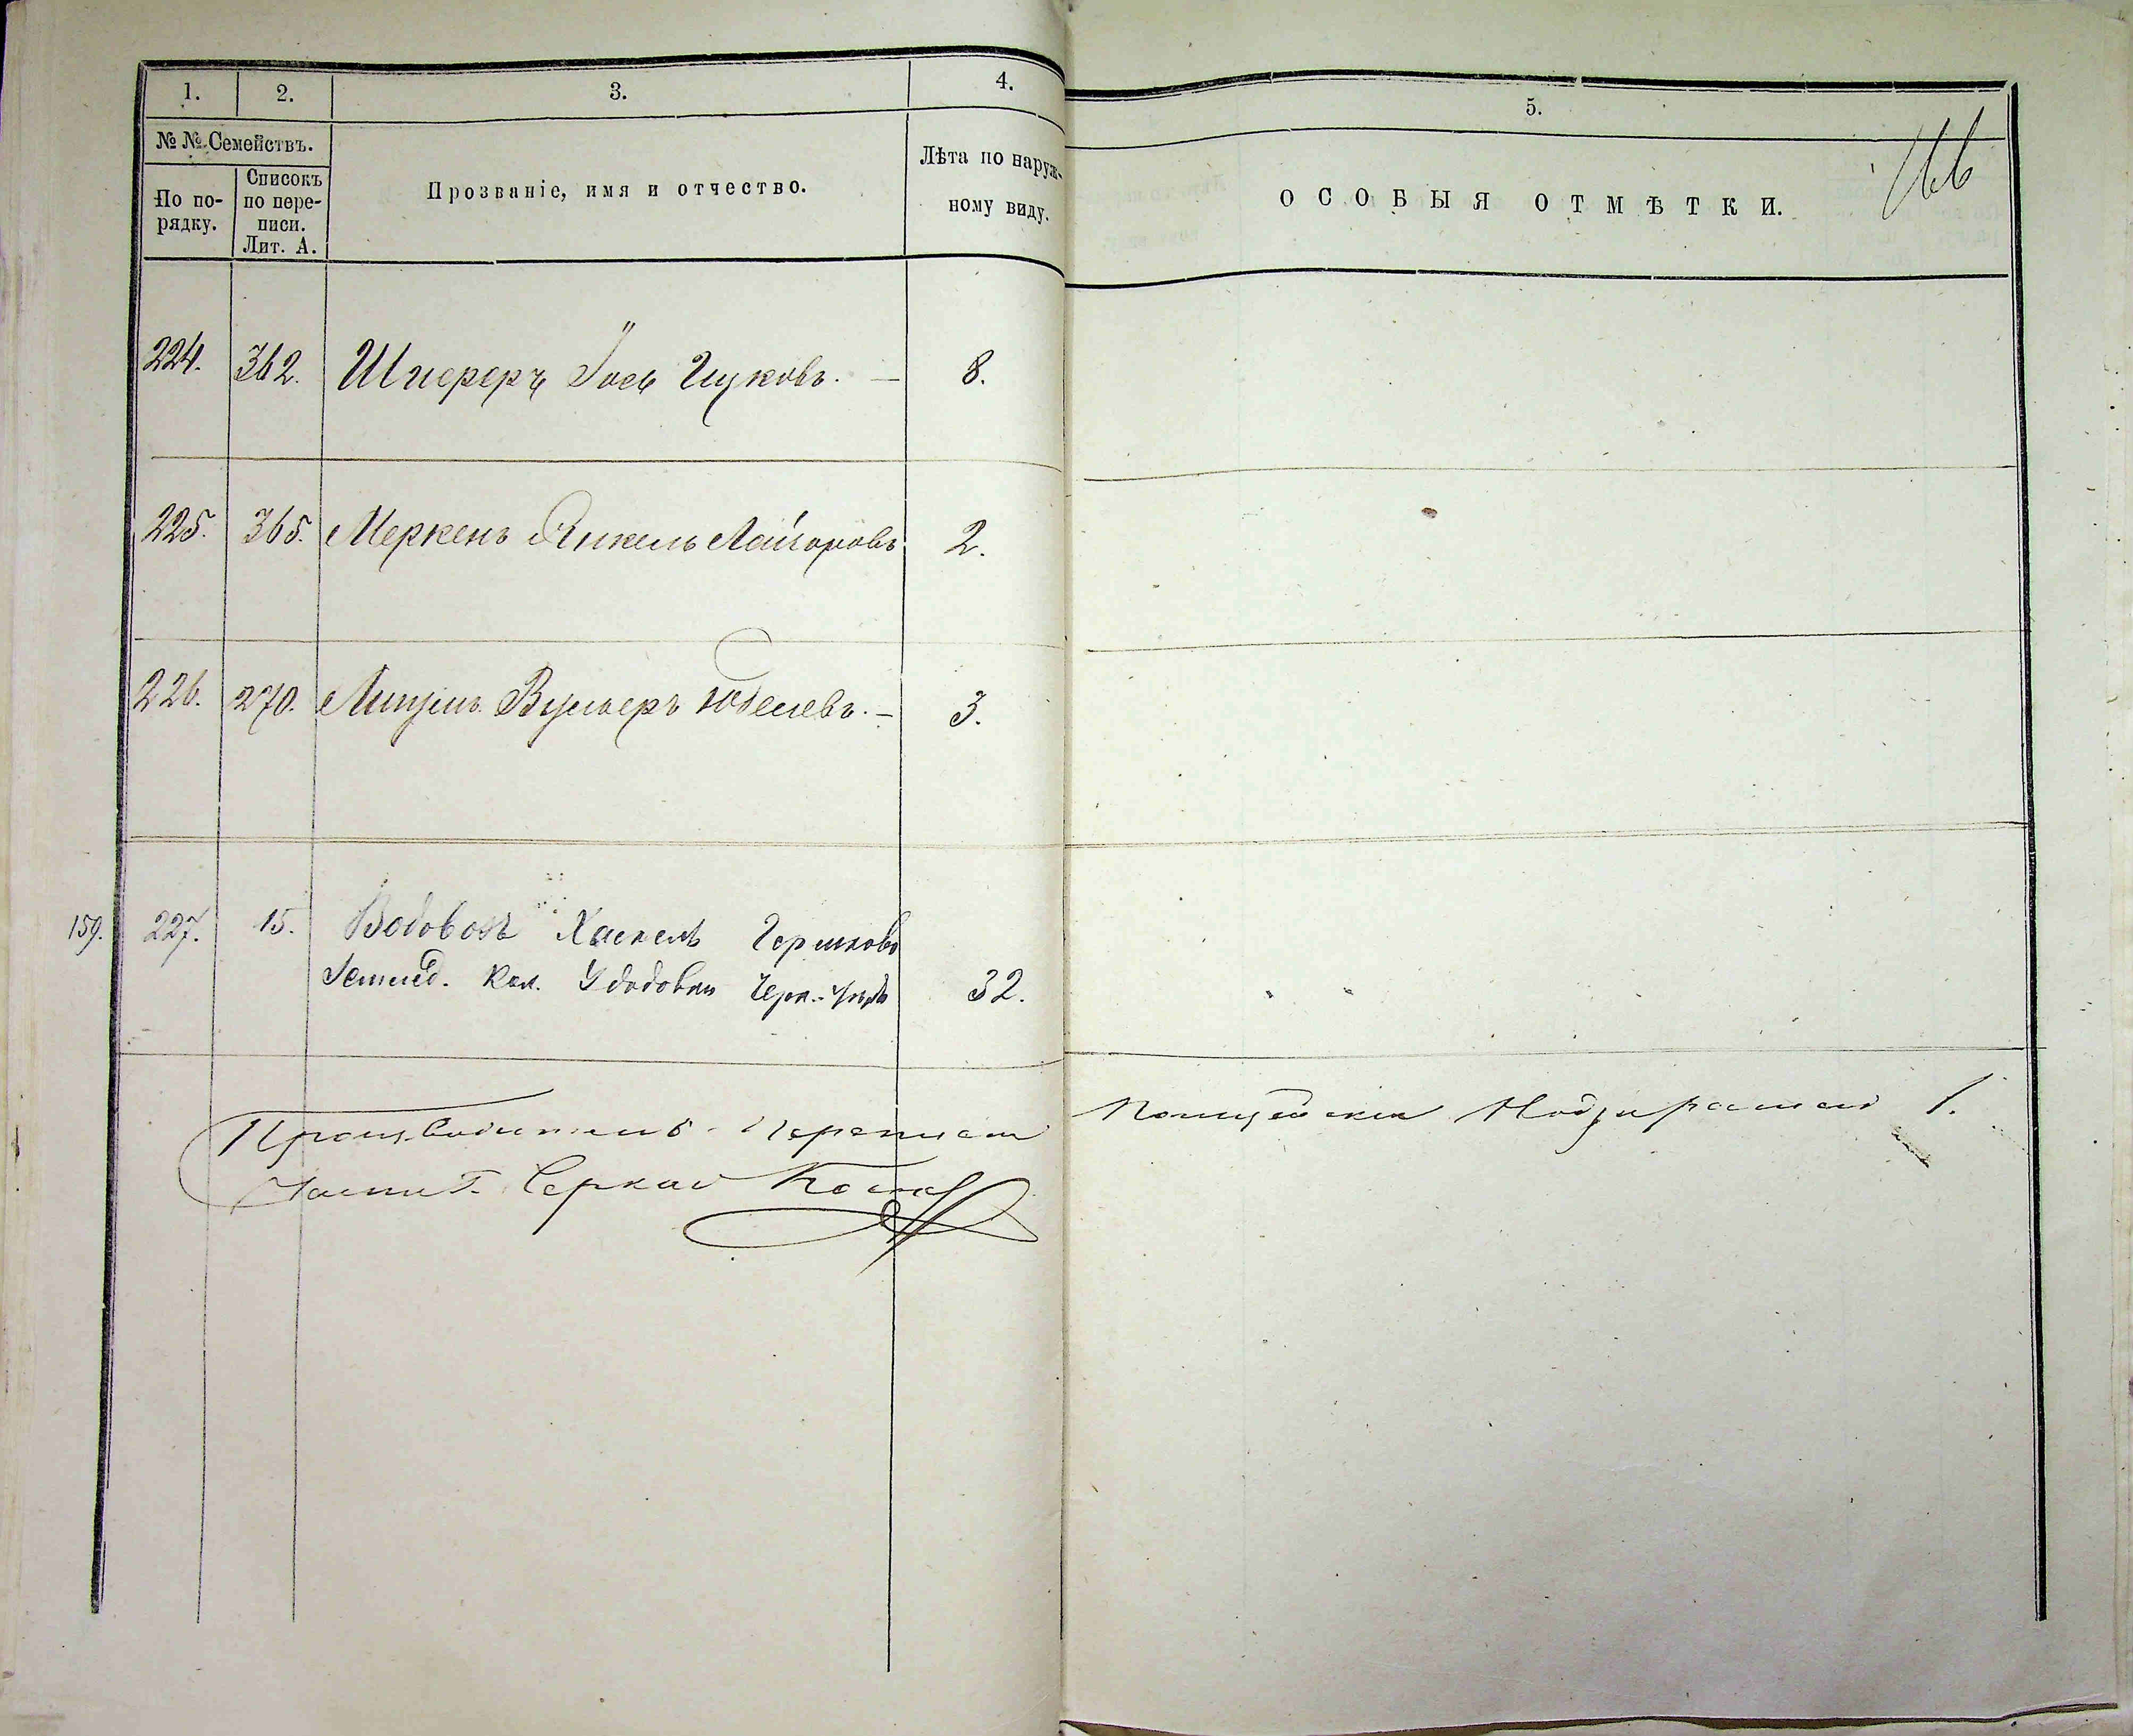 1. 2. 3. 4. 5.
№ № Семействъ.
По по-
рядку.
Списокъ
по пере-
писи.
Лит. А.
Прозваніе, имя и отчество.
Лѣта по наруж-
ному виду.
ОСОБЫЯ ОТМѢТКИ.
166
224. 362. Шпереръ Іось Ицковъ. — 8.
225. 365. Меркенъ Янкель Лейзоровъ 2.
226. 270. 3.
159. 227. 15. Водовозъ Хаскель Гершковъ
Кол. 32.
Производитель переписи
Полицейскій Надзиратель 1.